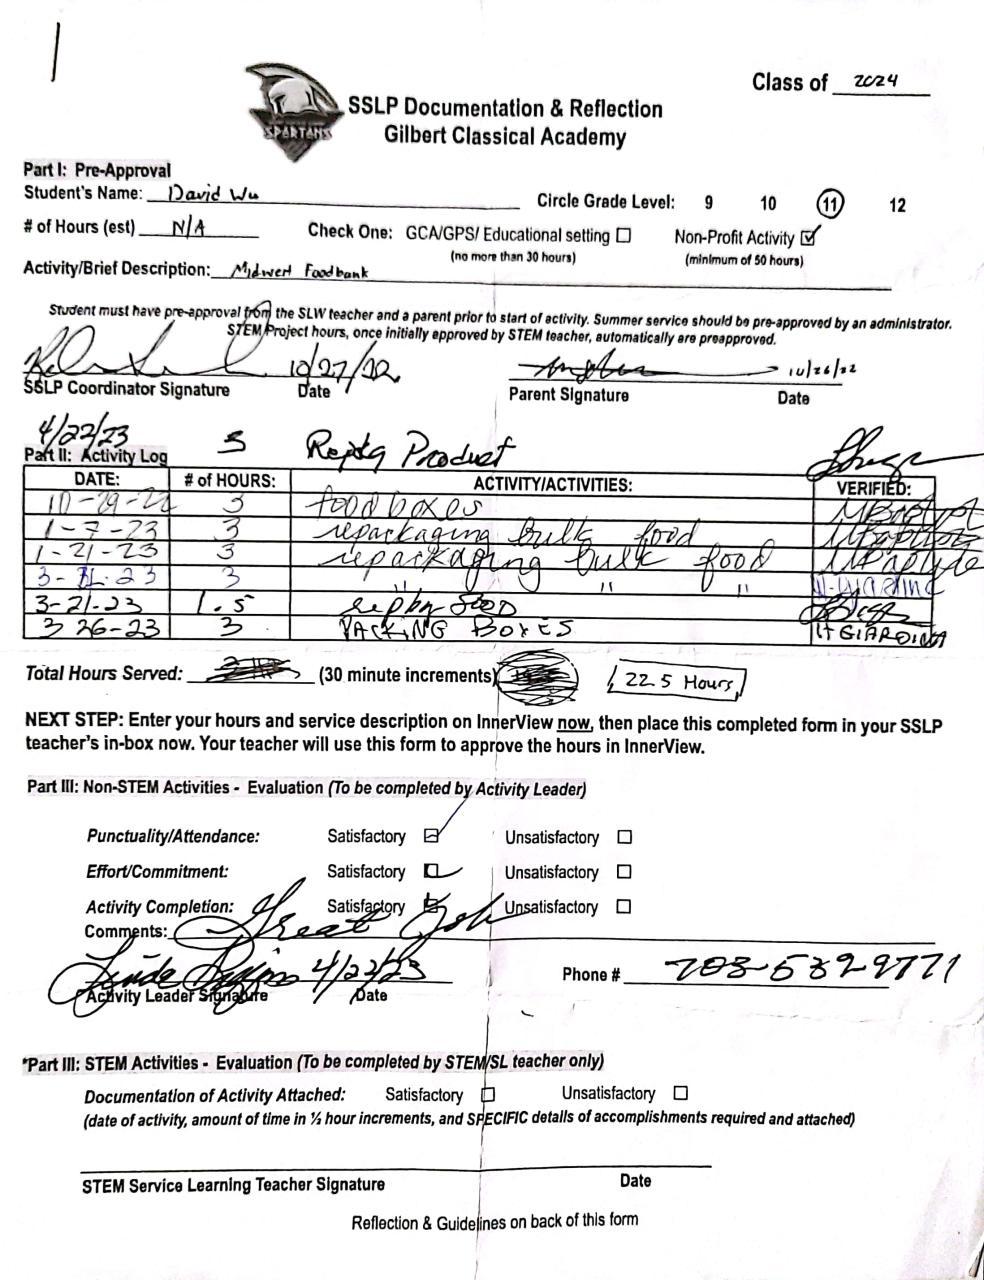 Class of 2024
SPARTANS
SSLP Documentation & Reflection
Gilbert Classical Academy
Part I: Pre-Approval
Student's Name: David Wu
Circle Grade Level: 9 10 11 12
# of Hours (est) N/A
Check One: GCA/GPS/ Educational setting ☐ Non-Profit Activity ☑
(no more than 30 hours) (minimum of 50 hours)
Activity/Brief Description: Midwest Foodbank
Student must have pre-approval from the SLW teacher and a parent prior to start of activity. Summer service should be pre-approved by an administrator.
STEM Project hours, once initially approved by STEM teacher, automatically are preapproved.
10/27/22 10/26/22
SSLP Coordinator Signature Date Parent Signature Date
4/22/23 5 Repkg Product
Part II: Activity Log
DATE: # of HOURS: ACTIVITY/ACTIVITIES: VERIFIED:
10-29-22 3 food boxes
1-7-23 3 repackaging bulk food
1-21-23 3 repackaging bulk food
3- 23 3 " " "
3-21-23 1.5 food
3 26-23 3 PACKING BOXES GIARDINA
Total Hours Served: (30 minute increments) 22.5 Hours
NEXT STEP: Enter your hours and service description on InnerView now, then place this completed form in your SSLP
teacher's in-box now. Your teacher will use this form to approve the hours in InnerView.
Part III: Non-STEM Activities - Evaluation (To be completed by Activity Leader)
Punctuality/Attendance: Satisfactory ☑ Unsatisfactory ☐
Effort/Commitment: Satisfactory ☑ Unsatisfactory ☐
Activity Completion: Satisfactory ☑ Unsatisfactory ☐
Comments: Great Job
4/22/23 Phone # 703-539-9771
Activity Leader Signature Date
*Part III: STEM Activities - Evaluation (To be completed by STEM/SL teacher only)
Documentation of Activity Attached: Satisfactory ☐ Unsatisfactory ☐
(date of activity, amount of time in ½ hour increments, and SPECIFIC details of accomplishments required and attached)
STEM Service Learning Teacher Signature Date
Reflection & Guidelines on back of this form